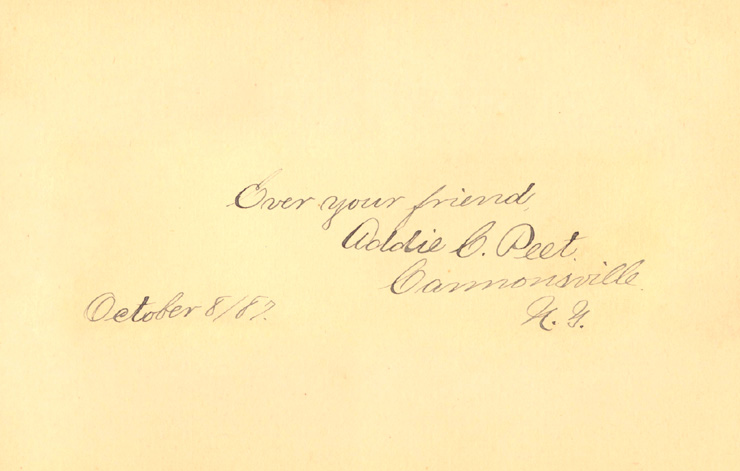 Ever your friend,
Addie C. Peet.
Cannonsville.
N. Y.
October 8/87.